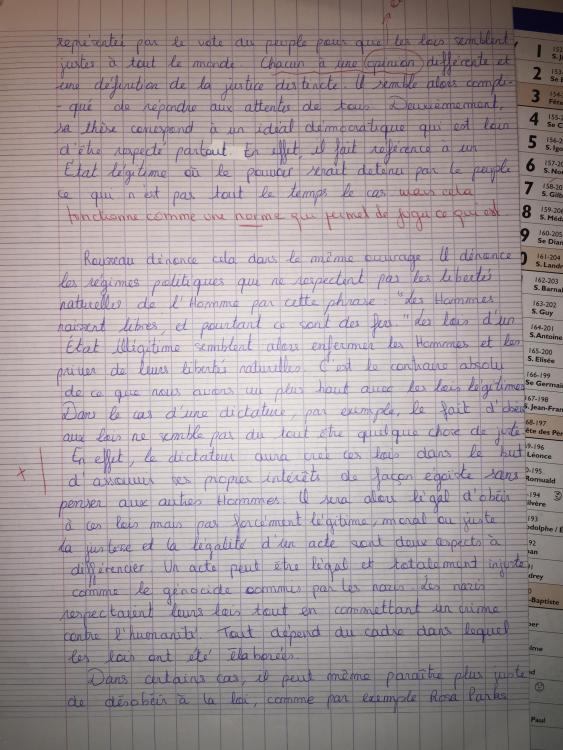 représentée par le vote du peuple pour que les lois semblent
justes à tout le monde. Chacun à une opinion différente et
une définition de la justice distincte. Il semble alors compli-
-qué de répondre aux attentes de tous. Deuxièmement,
sa thèse correspond à un idéal démocratique qui est loin
d'être respecté partout. En effet, il fait référence à un
État légitime où le pouvoir serait detenu par le peuple
ce qui n'est pas tout le temps le cas mais cela
fonctionne comme une norme qui permet de juger ce qui est.
Rousseau dénonce cela dans le même ouvrage. Il dénonce
les régimes politiques qui ne respectent pas les libertés
naturelles de l'Homme par cette phrase : "Les Hommes
naissent libres, et pourtant ce sont des fers." Les lois d'un
État illégitime semblent alors enfermer les Hommes et les
priver de leurs libertés naturelles. C'est le contraire absolu
de ce que nous avons vu plus haut avec les lois légitimes
Dans le cas d'une dictature, par exemple, le fait d'obéir
aux lois ne semble pas du tout être quelque chose de juste.
En effet, le dictateur aura créé ces lois dans le but
+ d'assouvir ses propres intérêts de façon égoïste sans
penser aux autres Hommes. Il sera alors légal d'obéir
à ces lois mais pas forcément légitime, moral ou juste
la justesse et la légalité d'un acte sont deux aspects à
différencier. Un acte peut être légal et totalement injuste
comme le génocide commis par les nazis. Les nazis
respectaient leurs lois tout en commettant un crime
contre l'humanité. Tout dépend du cadre dans lequel
les lois ont été élaborées.
Dans certains cas, il peut même paraître plus juste
de désobéir à la loi, comme par exemple Rosa Parks
1
2
3
4
5
6
7
8
9
S. Médard
159-206
160-205
Se Diane
161-204
S. Landry
162-203
S. Barnabé
163-202
S. Guy
164-201
S. Antoine
165-200
S. Elisée
166-199
Se Germaine
167-198
S. Jean-Fran
168-197
Fête des Pères